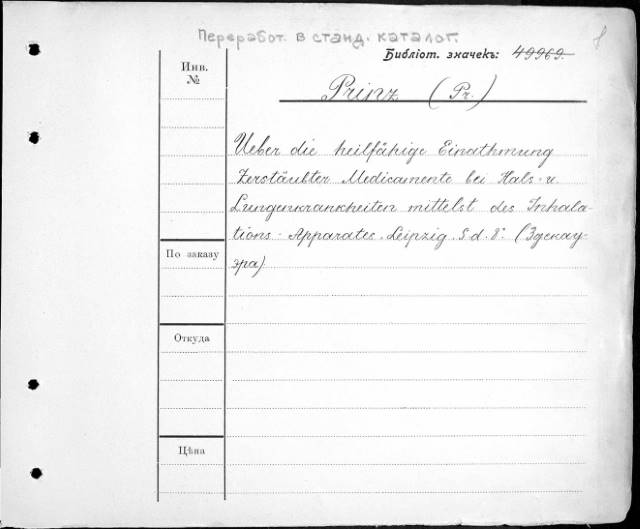 Переработ. в станд. каталог.
Библіот. значекъ: 49969.
Инв.
№
Prinz (Pr.)
Ueber die heilfähige Einathmung
Zerstäubter Medicamente bei Hals- u.
Lungenkrankheiten mittelst des Inhala-
tions-Apparates. Leipzig. S. d. 8°. (Эдекау-
эра)
По заказу
Откуда
Цѣна